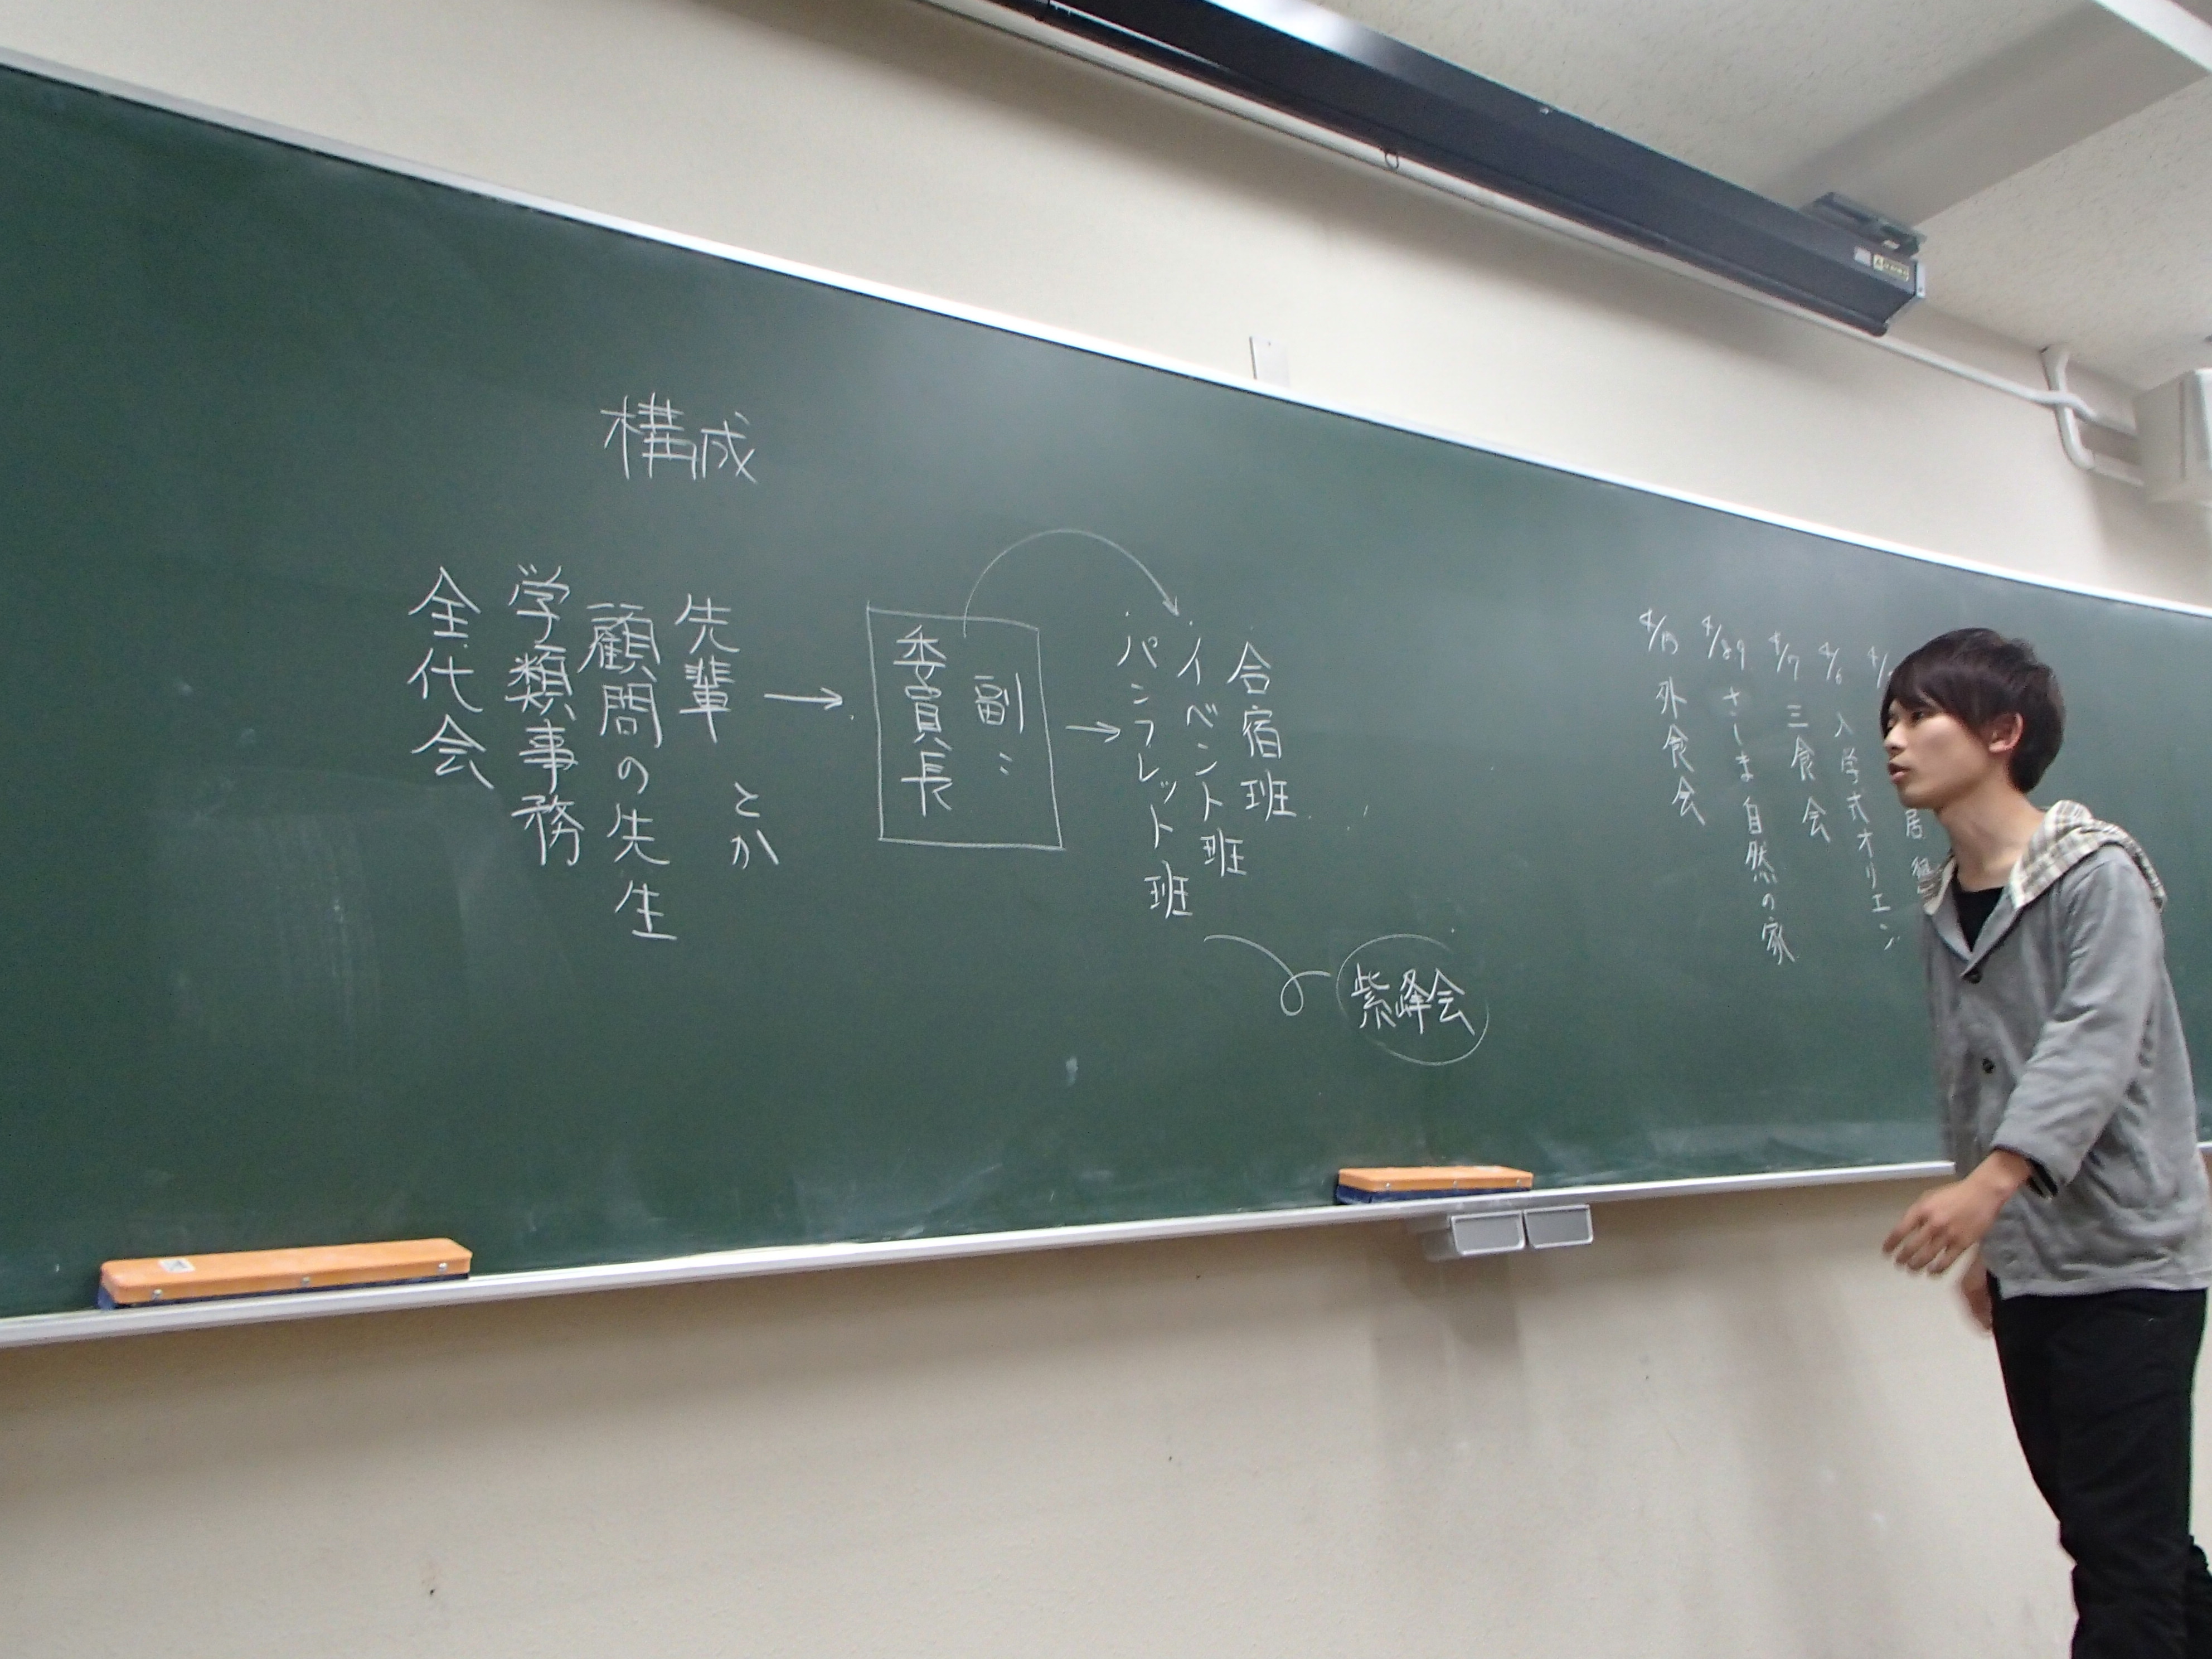 構成
先輩
とか
顧問の先生
学類事務
全代会
副〃
委員長
合宿班
イベント班
パンフレット班
紫峰会
4/6 入学式オリエン
4/7 三食会
4/89 さしま自然の家
4/15 外食会